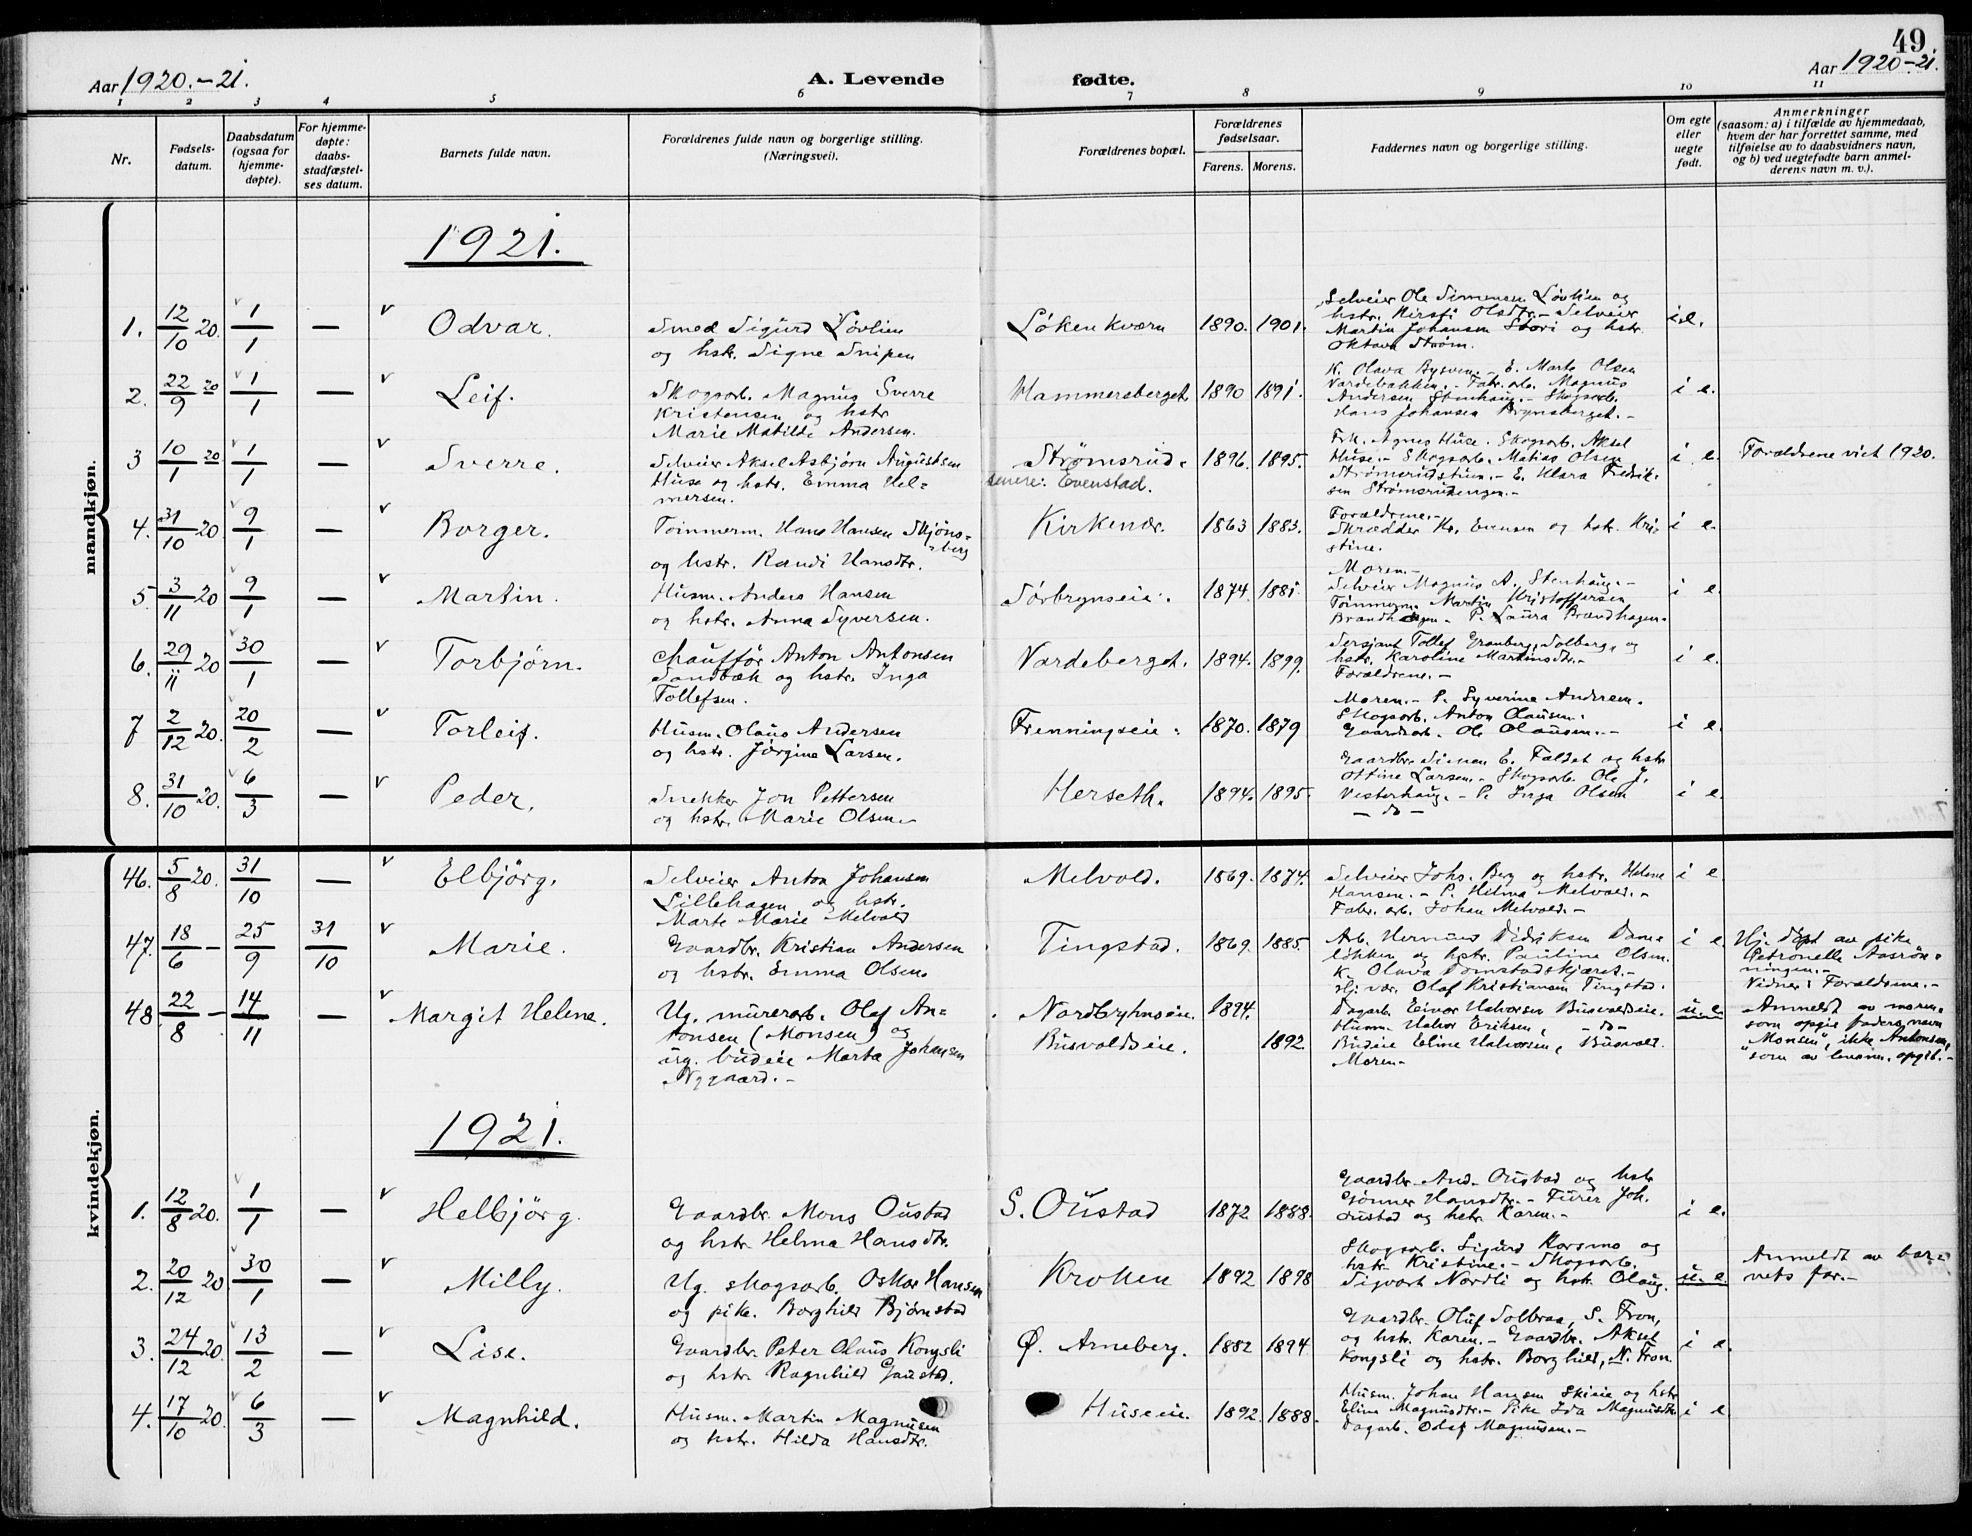 49
Aar 1920.-21.
A. Levende fødte.
Aar 1920-21.
1 2 3 4 5 6 7 8 9 10 11
Nr.
Fødsels-
datum.
Daabsdatum
(ogsaa for
hjemme-
døpte).
For hjemme-
døpte:
daabs-
stadfæstel-
ses datum.
Barnets fulde navn.
Forældrenes fulde navn og borgerlige stilling.
(Næringsvei).
Forældrenes bopæl.
Forældrenes
fødselsaar.
Farens. Morens.
Faddernes navn og borgerlige stilling.
Om egte
eller
uegte
født.
Anmerkninger
(saasom: a) i tilfælde av hjemmedaab,
hvem der har forrettet samme, med
tilføielse av to daabsvidners navn,
og b) ved uegtefødte barn anmel-
derens navn m. v.).
mandkjøn.
1921.
1. 12/10 20. 1/1 — Odvar.
Smed Sigurd Løvlien
og hstr. Signe Snipen
Løken kværn 1890. 1901.
Selveier Ole Simensen Løvlien og
hstr. Kirsti Olsdtr. - Selveier
Martin Johansen Stori og hstr.
Oktava Strøm.
i e.
2. 22/9 20 1/1 — Leif.
Skogsarb. Magnus Sverre
Kristensen og hstr
Marie Matilde Andersen.
Hammersberget 1890 1891.
K. Olava Bysven. - E. Marte Olsen
Vardebakken. - Fabr. arb. Magnus
Andersen Stenhaug. - Skogsarb.
Hans Johansen Brynsberget. -
i e.
3 10/1 20 1/1 — Sverre.
Selveier Aksel Asbjørn Augustsen
Huse og hstr. Emma Hel=
mersen.
Strømsrud.
senere: Evenstad.
1896. 1895.
Frk. Agnes Huse. Skogsarb. Aksel
Huse. - Skogsarb. Matias Olsen
Strømsrudstuen. - E. Klara Fredrik-
sen Strømsrudengen. -
i e.
Forældrene viet 1920.
4. 31/10 20 9/1 — Borger.
Tømmerm. Hans Hansen Skjøns=
=berg
og hstr. Randi Hansdtr.
Kirkenær. 1863 1883.
Forældrene. -
Skrædder Kr. Evensen og hstr. Kri-
stine.
i e.
5. 3/11 20 9/1 — Martin.
Husm. Anders Hansen
og hstr. Anna Syversen.
Sørbrynseie. 1874. 1881.
Moren. -
Selveier Magnus A. Stenhaug. -
Tømmerm. Martin Kristoffersen
Brandhagen. P. Laura Brandhagen.
i e.
6. 29/11 20 30/1 — Torbjørn.
Chauffør Anton Antonsen
Sandbæk og hstr. Inga
Tollefsen.
Vardeberget. 1894. 1899.
Sersjant Tollef Granberg, Solberg, og
hstr. Karoline Martinsdtr. -
Forældrene. -
i e.
7 2/12 20. 20/2 — Torleif.
Husm. Olaus Andersen
og hstr. Jørgine Larsen.
Frenningseie. 1870. 1879
Moren. - P. Syverine Andersen.
Skogsarb. Anton Olausen.
Gaardsarb. Ole Olausen. -
i e.
8. 31/10 20. 6/3 — Peder.
Snekker Jon Pettersen
og hstr. Marie Olsen.
Herseth. 1894. 1895.
Gaardbr. Simen E. Faldet og hstr
Ottine Larsen. - Skogsarb. Ole J.
Vesterhaug. - P. Inga Olsen
- do -
i e.
kvindekjøn.
46. 5/8 20. 31/10 — Elbjørg.
Selveier Anton Johansen
Lillehagen og hstr.
Marte Marie Melvold
Melvold. 1869. 1874.
Selveier Johs. Berg og hstr. Helene
Hansen. - P. Hilma Melvold. -
Fabr. arb. Johan Melvold. -
i e.
47. 18/6 - 25/9 31/10 Marie.
Gaardbr. Kristian Andersen
og hstr. Emma Olsen.
Tingstad. 1869. 1885.
Arb. Herman Didriksen Dame=
løkken og hstr. Pauline Olsen.
K. Olava Domstadskjæret. -
Hj. vær. Olaf Kristiansen Tingstad.
i e.
Hj. døpt av pike
Petronelle Aasrøn=
ningen. -
Vidner: Forældrene. -
48 22/8 - 14/11 — Margit Helene.
Ug. murerarb. Olaf An=
tonsen (Monsen) og
ug. budeie Marta Johansen
Nygaard. -
Nordbrynseie. 1894.
Busvoldseie. 1892.
Dagarb. Einar Halvorsen Busvoldseie.
Husm. Halvor Eriksen, - do -
Budeie Eline Halvorsen, Busvold.
Moren -
u. e.
Anmeldt av moren,
som opgir faderens navn
"Monsen", ikke Antonsen,
som av opgit. -
1921.
1. 12/8 20. 1/1 — Helbjørg.
Gaardbr. Mons Oustad
og hstr. Helma Hansdtr.
S. Oustad 1872 1888.
Gaardbr. And. Oustad og hstr
Gønner Hansdtr. - Furer Joh.
Oustad og hstr. Karen. -
i e.
2. 20/12 20 30/1 — Milly.
Ug. skogsarb. Oskar Hansen
og pike. Borghild Bjørnstad
Krohen 1892 1898
Skogsarb. Sigurd Korsmo og
hstr. Kristine. - Skogsarb.
Sigvart Nordli og hstr. Olaug.
u. e.
Anmeldt av bar=
nets far. -
3. 24/12 20 13/2 — Lise.
Gaardbr. Peter Olaus Kongsli
og hstr. Ragnhild Gaustad.
Ø. Arneberg. 1882 1894
Gaardbr. Oluf Solbraa, S. Fron,
og hstr. Karen. - Gaardbr. Aksel
Kongsli og hstr. Borghild, N. Fron.
i e.
4. 17/10 20. 6/3 — Magnhild.
Husm. Martin Magnusen
og hstr. Hilda Hansdtr.
Huseie. 1892. 1888.
Husm. Johan Hansen Skieie og hstr
Eline Magnusdtr. - Pike Ida Magnusdtr
Dagarb. Olaf Magnusen. -
i e.